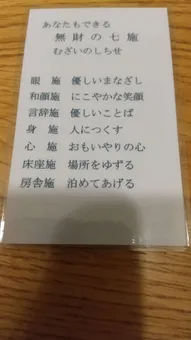 あなたもできる
無財の七施
むざいのしちせ
眼施 優しいまなざし
和顔施 にこやかな笑顔
言辞施 優しいことば
身施 人につくす
心施 おもいやりの心
床座施 場所をゆずる
房舎施 泊めてあげる